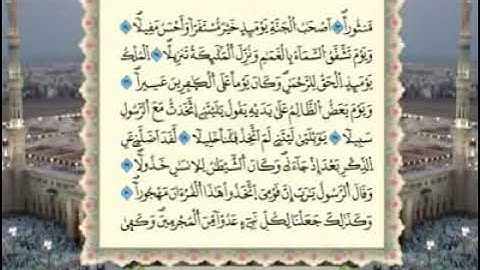 مَّنثُوراً ۝ أَصْحَٰبُ الْجَنَّةِ يَوْمَئِذٍ خَيْرٌ مُّسْتَقَرّاً وَأَحْسَنُ مَقِيلاً ۝
وَيَوْمَ تَشَّقَّقُ السَّمَآءُ بِالْغَمَٰمِ وَنُزِّلَ الْمَلَٰٓئِكَةُ تَنزِيلاً ۝ الْمُلْكُ
يَوْمَئِذٍ الْحَقُّ لِلرَّحْمَٰنِ وَكَانَ يَوْماً عَلَى الْكَٰفِرِينَ عَسِيراً ۝
وَيَوْمَ يَعَضُّ الظَّالِمُ عَلَىٰ يَدَيْهِ يَقُولُ يَٰلَيْتَنِے اِتَّخَذتُّ مَعَ الرَّسُولِ
سَبِيلاً ۝ يَٰوَيْلَتَىٰ لَيْتَنِے لَمْ أَتَّخِذْ فُلَاناً خَلِيلاً ۝ لَّقَدْ أَضَلَّنِے عَنِ
الذِّكْرِ بَعْدَ إِذْ جَآءَنِے وَكَانَ الشَّيْطَٰنُ لِلْإِنسَٰنِ خَذُولاً ۝
وَقَالَ الرَّسُولُ يَٰرَبِّ إِنَّ قَوْمِيَ اَتَّخَذُواْ هَٰذَا الْقُرْءَانَ مَهْجُوراً ۝
وَكَذَٰلِكَ جَعَلْنَا لِكُلِّ نَبِےٓءٍ عَدُوّاً مِّنَ الْمُجْرِمِينَ وَكَفَىٰ